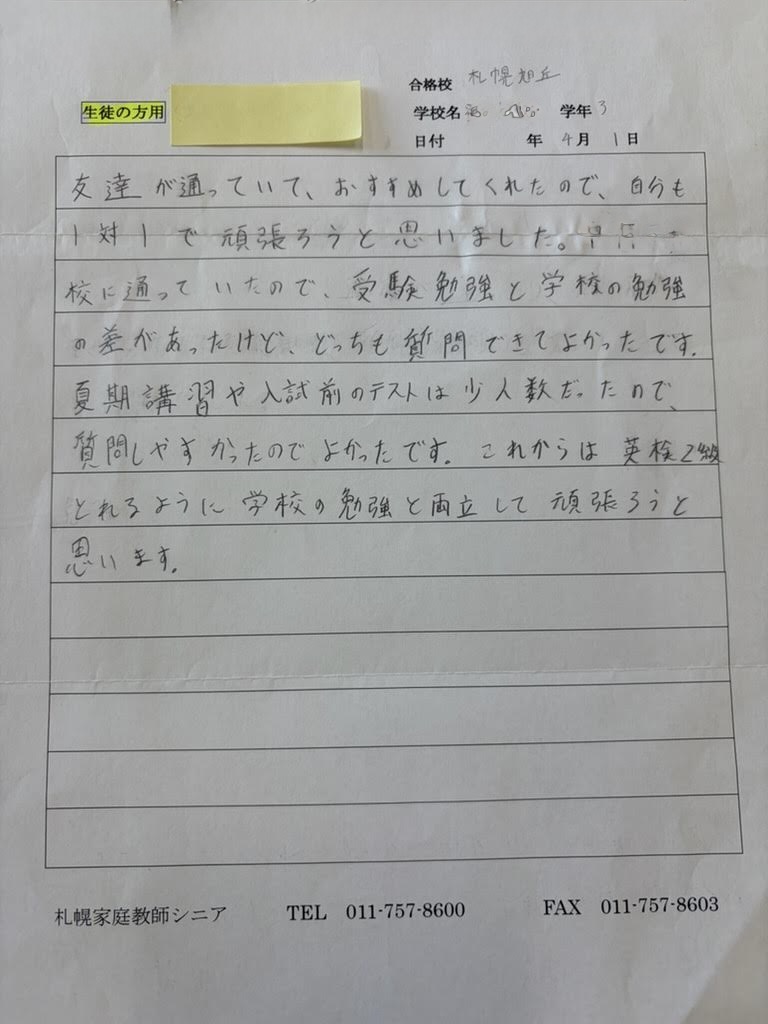 合格校 札幌旭丘
生徒の方用
学校名 学年 3
日付 年 4月 1日
友達が通っていて、おすすめしてくれたので、自分も
1対1で頑張ろうと思いました。
校に通っていたので、受験勉強と学校の勉強
の差があったけど、どっちも質問できてよかったです。
夏期講習や入試前のテストは少人数だったので、
質問しやすかったのでよかったです。これからは英検2級
とれるように学校の勉強と両立して頑張ろうと
思います。
札幌家庭教師シニア TEL 011-757-8600 FAX 011-757-8603